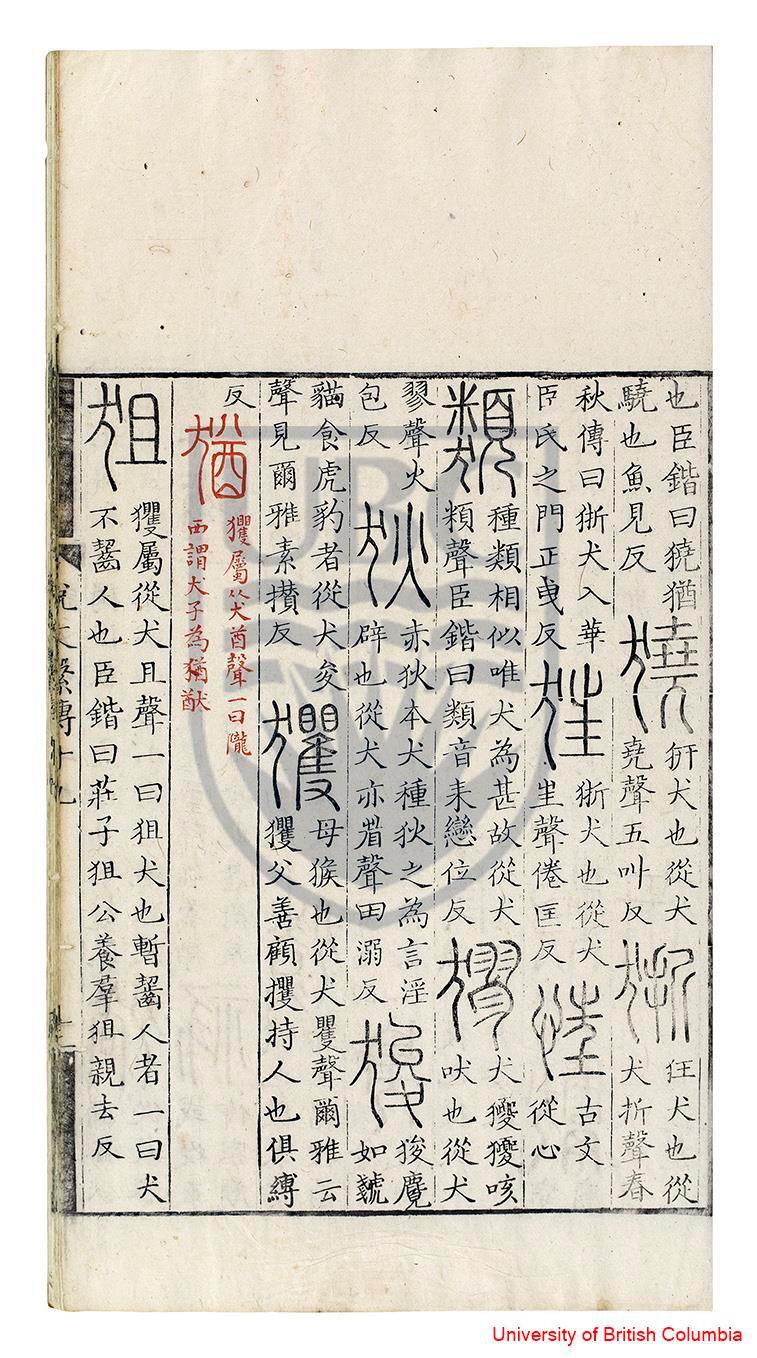 也臣鍇曰獟猶
驍也魚見反
獟
犴犬也從犬
堯聲五叫反
狾
狂犬也從
犬折聲春
秋傳曰狾犬入華
臣氏之門正曵反
狂
狾犬也從犬
㞷聲倦匡反
忹
古文
從心
類
種類相似唯犬為甚故從犬
頪聲臣鍇曰類音耒戀位反
㺒
犬獿獿咳
吠也從犬
翏聲火
包反
狄
赤狄本犬種狄之為言淫
辟也從犬亦省聲田溺反
狻
狻麑
如虦
貓食虎豹者從犬夋
聲見爾雅素攢反
玃
母猴也從犬矍聲爾雅云
玃父善顧攫持人也俱縛
反
猶
玃屬从犬酋聲一曰隴
西謂犬子為猶猷
狙
玃屬從犬且聲一曰狙犬也暫齧人者一曰犬
不齧人也臣鍇曰莊子狙公養羣狙親去反
說文繫傳十九
UBC
University of British Columbia